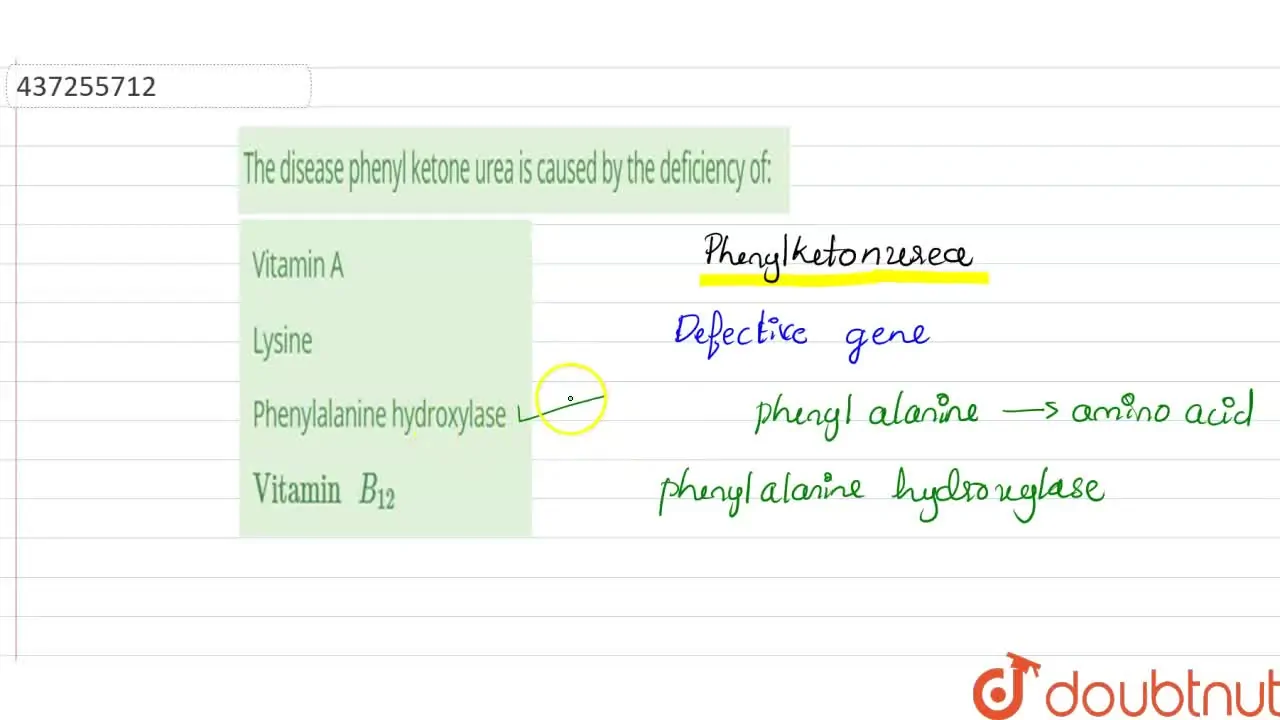 437255712
The disease phenyl ketone urea is caused by the deficiency of:
Vitamin A
Lysine
Phenylalanine hydroxylase
Vitamin B12
Phenylketonurea
Defective gene
phenyl alanine → amino acid
phenyl alanine hydroxylase
doubtnut